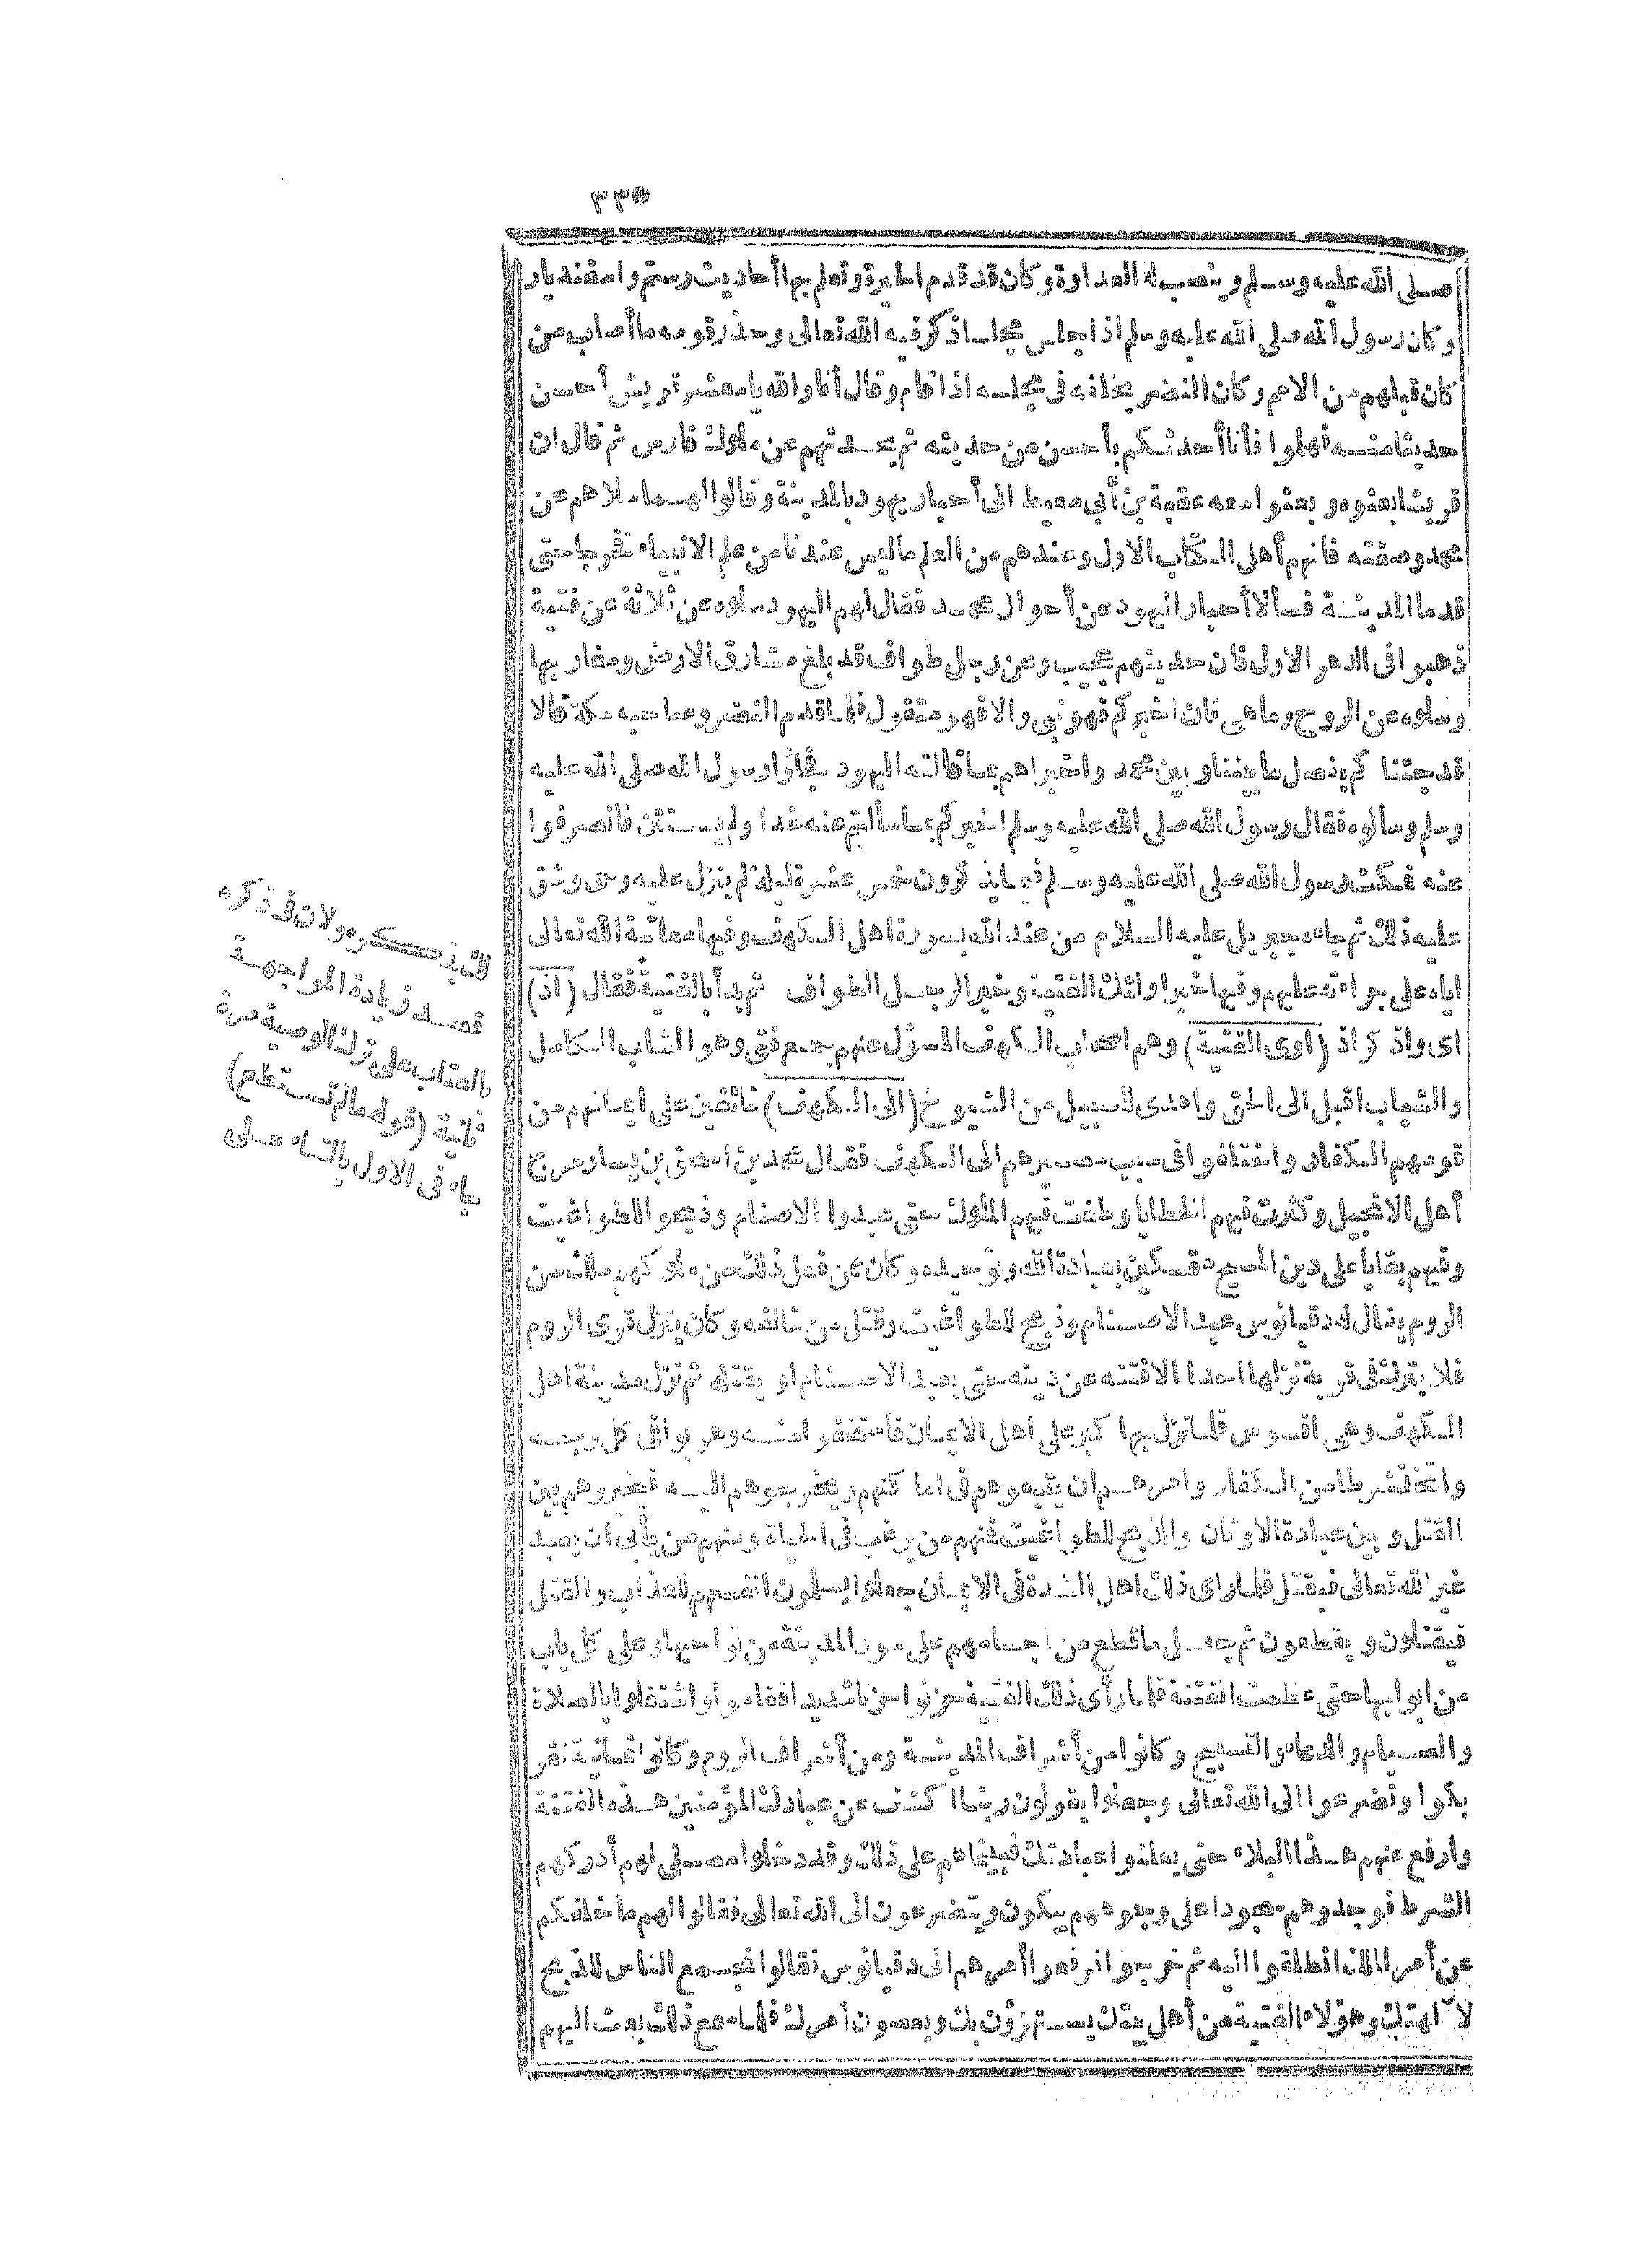 ٣٣٥
صلى الله عليه وسلم وينصب له العداوة وكان قد قدم الحيرة وتعلم بها أحاديث رستم واسفنديار
وكان رسول الله صلى الله عليه وسلم اذا جلس مجلسا ذكر فيه الله تعالى وحذر قومه ما أصاب من
كان قبلهم من الامم وكان النضر يخلفه فى مجلسه اذا قام وقال أنا والله يا معشر قريش أحسن
حديثا منه فهلموا فأنا أحدثكم بأحسن من حديثه ثم يحدثهم عن ملوك فارس ثم قال ان
قريشا بعثوه وبعثوا معه عقبة بن أبى معيط الى أحبار يهود بالمدينة وقالوا لهما سلاهم عن
محمد وصفته فانهم أهل الكتاب الاول وعندهم من العلم ما ليس عندنا من علم الانبياء نفرجا حتى
قدما المدينة فسألا أحبار اليهود عن أحوال محمد فقال لهم اليهود سلوه عن ثلاثة عن فتية
ذهبوا فى الدهر الاول فان حديثهم عجيب وعن رجل طواف قد بلغ مشارق الارض ومغاربها
وسلوه عن الروح وما هى فان اخبركم فهو نبى والا فهو متقول فلما قدم النضر وصاحبه مكة قالا
قد جئنا كم بفصل ما بيننا وبين محمد واخبراهم بما قالته اليهود فجاؤا رسول الله صلى الله عليه
وسلم وسألوه فقال رسول الله صلى الله عليه وسلم اخبركم بما سألتم عنه غدا ولم يستثن فانصرفوا
عنه فمكث رسول الله صلى الله عليه وسلم فيما يذكرون خمس عشرة ليلة لم ينزل عليه وحى وشق
عليه ذلك ثم جاءه جبريل عليه السلام من عند الله بسورة اهل الكهف وفيها معاتبة الله تعالى
اياه على جراءته عليهم وفيها خبر اولئك الفتية وخبر الرجل الطواف ثم بدأ بالفتية فقال (اذ)
اى واذكر اذ (اوى الفتية) وهم اصحاب الكهف المسؤل عنهم جمع فتى وهو الشاب الكامل
والشباب اقبل الى الحق واهدى لسبيل من الشيوخ (الى الكهف) خائفين على ايمانهم من
قومهم الكفار واختلفوا فى سبب مصيرهم الى الكهف فقال محمد بن اسحق بن يسار مرج
أهل الانجيل وكثرت فيهم الخطايا وطغت فيهم الملوك حتى عبدوا الاصنام وذبحوا للطواغيت
وفيهم بقايا على دين المسيح متمسكين بعبادة الله وتوحيده وكان ممن فعل ذلك من ملوكهم ملك من
الروم يقال له دقيانوس عبد الاصنام وذبح للطواغيت وقتل من خالفه وكان ينزل قرى الروم
فلا يترك فى قرية نزلها احدا الافتنه عن دينه حتى يعبد الاصنام او يقتله ثم نزل مدينة اهل
الكهف وهى افسوس فلما نزل بها كبر على اهل الايمان فاستخفوا منه وهربوا فى كل وجه
واتخذ شرطا من الكفار وامرهم ان يتبعوهم فى اماكنهم ويخرجوهم اليه فيخيروهم بين
القتل وبين عبادة الاوثان والذبح للطواغيت فمنهم من يرغب فى الحياة ومنهم من يأبى ان يعبد
غير الله تعالى فيقتل فلما راى ذلك اهل الشدة فى الايمان جعلوا يسلمون انفسهم للعذاب والقتل
فيقتلون ويقطعون ثم يجعل ما قطع من اجسامهم على سور المدينة من نواحيها وعلى كل باب
من ابوابها حتى عظمت الفتنة فلما رأى ذلك الفتية حزنوا حزنا شديدا فقاموا واشتغلوا بالصلاة
والصيام والدعاء والتسبيح وكانوا من أشراف المدينة ومن أشراف الروم وكانوا ثمانية نفر
بكوا وتضرعوا الى الله تعالى وجعلوا يقولون ربنا اكشف عن عبادك المؤمنين هذه الفتنة
وارفع عنهم هذا البلاء حتى يعلنوا عبادتك فبينما هم على ذلك وقد دخلوا مصلى لهم أدركهم
الشرط فوجدوهم سجودا على وجوههم يبكون ويتضرعون الى الله تعالى فقالوا لهم ما خلفكم
عن أمر الملك انطلقوا اليه ثم خرجوا فرفعوا أمرهم الى دقيانوس فقالوا نجمع الناس للذبح
لآلهتك وهؤلاء الفتية من أهل بيتك يستهزؤن بك ويعصون أمرك فلما سمع ذلك بعث اليهم
لان يذكره ولان فى ذكره
قصد زيادة المواجهة
بالعتاب على ترك الوصية مرة
ثانية (قوله ما لم تستطع)
جاء فى الاول بالتاء على